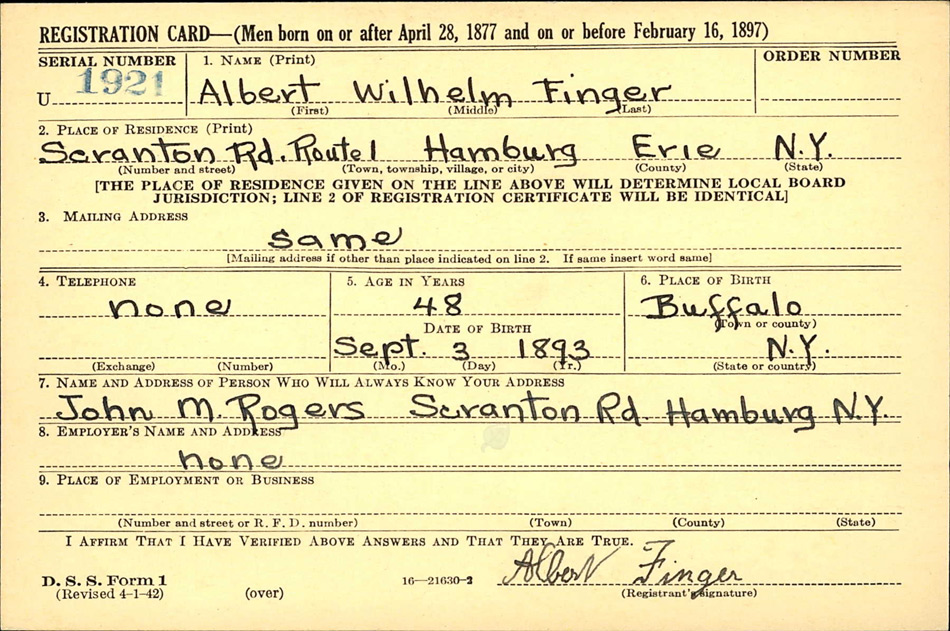 REGISTRATION CARD—(Men born on or after April 28, 1877 and on or before February 16, 1897)
SERIAL NUMBER
U 1921
1. NAME (Print)
Albert Wilhelm Finger
(First) (Middle) (Last)
ORDER NUMBER
2. PLACE OF RESIDENCE (Print)
Scranton Rd. Route 1 Hamburg Erie N.Y.
(Number and street) (Town, township, village, or city) (County) (State)
[THE PLACE OF RESIDENCE GIVEN ON THE LINE ABOVE WILL DETERMINE LOCAL BOARD
JURISDICTION; LINE 2 OF REGISTRATION CERTIFICATE WILL BE IDENTICAL]
3. MAILING ADDRESS
same
[Mailing address if other than place indicated on line 2. If same insert word same]
4. TELEPHONE
none
(Exchange) (Number)
5. AGE IN YEARS
48
DATE OF BIRTH
Sept. 3 1893
(Mo.) (Day) (Yr.)
6. PLACE OF BIRTH
Buffalo
(Town or county)
N.Y.
(State or country)
7. NAME AND ADDRESS OF PERSON WHO WILL ALWAYS KNOW YOUR ADDRESS
John M. Rogers Scranton Rd. Hamburg N.Y.
8. EMPLOYER'S NAME AND ADDRESS
none
9. PLACE OF EMPLOYMENT OR BUSINESS
(Number and street or R. F. D. number) (Town) (County) (State)
I AFFIRM THAT I HAVE VERIFIED ABOVE ANSWERS AND THAT THEY ARE TRUE.
D. S. S. Form 1
(Revised 4-1-42) (over)
16—21630-2
Albert Finger
(Registrant's signature)